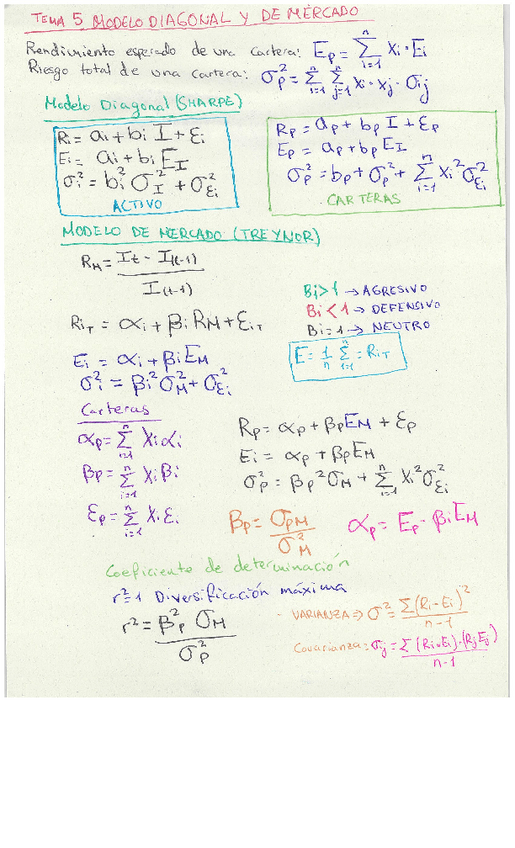 TEMA 5 MODELO DIAGONAL Y DE MERCADO
Rendimiento esperado de una cartera: Ep = Σ(i=1, n) Xi · Ei
Riesgo total de una cartera: σp² = Σ(i=1, n) Σ(j=1, n) xi · xj · σij
Modelo Diagonal (SHARPE)
Ri = ai + bi I + εi
Ei = ai + bi EI
σi² = bi² σI² + σεi²
ACTIVO
Rp = ap + bp I + εp
Ep = ap + bp EI
σp² = bp + σp² + Σ(i=1, n) Xi² σεi²
CARTERAS
MODELO DE MERCADO (TREYNOR)
RM = (It - I(t-1)) / I(t-1)
RiT = αi + βi RM + εiT
Bi > 1 → AGRESIVO
Bi < 1 → DEFENSIVO
Bi = 1 → NEUTRO
E = 1/n Σ(i=1, n) = RiT
Ei = αi + βi EM
σi² = βi² σM² + σεi²
Carteras
αp = Σ(i=1, n) Xi αi
βp = Σ(i=1, n) Xi βi
εp = Σ(i=1, n) Xi εi
Rp = αp + βp EM + εp
Ei = αp + βp EM
σp² = βp² σM + Σ(i=1, n) Xi² σεi²
βp = σpM / σM²
αp = Ep - βi EM
Coeficiente de determinación
r² = 1 Diversificación máxima
r² = βp² σM / σp²
- VARIANZA ⇒ σ² = Σ(Ri - Ei)² / n-1
Covarianza: σij = Σ (Ri - Ei) · (Rj Ej) / n-1